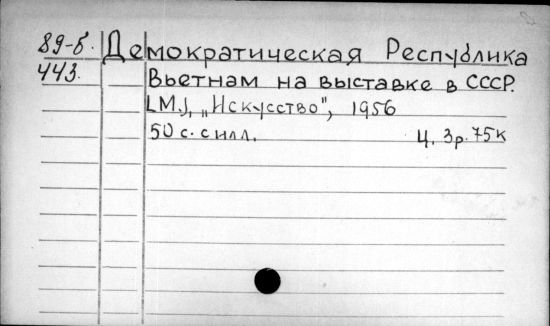 89-б. Демократическая Республика
443. Вьетнам на выставке в СССР.
[М.], „Искусство", 1956
50 с. с илл. Ц. 3р. 75к